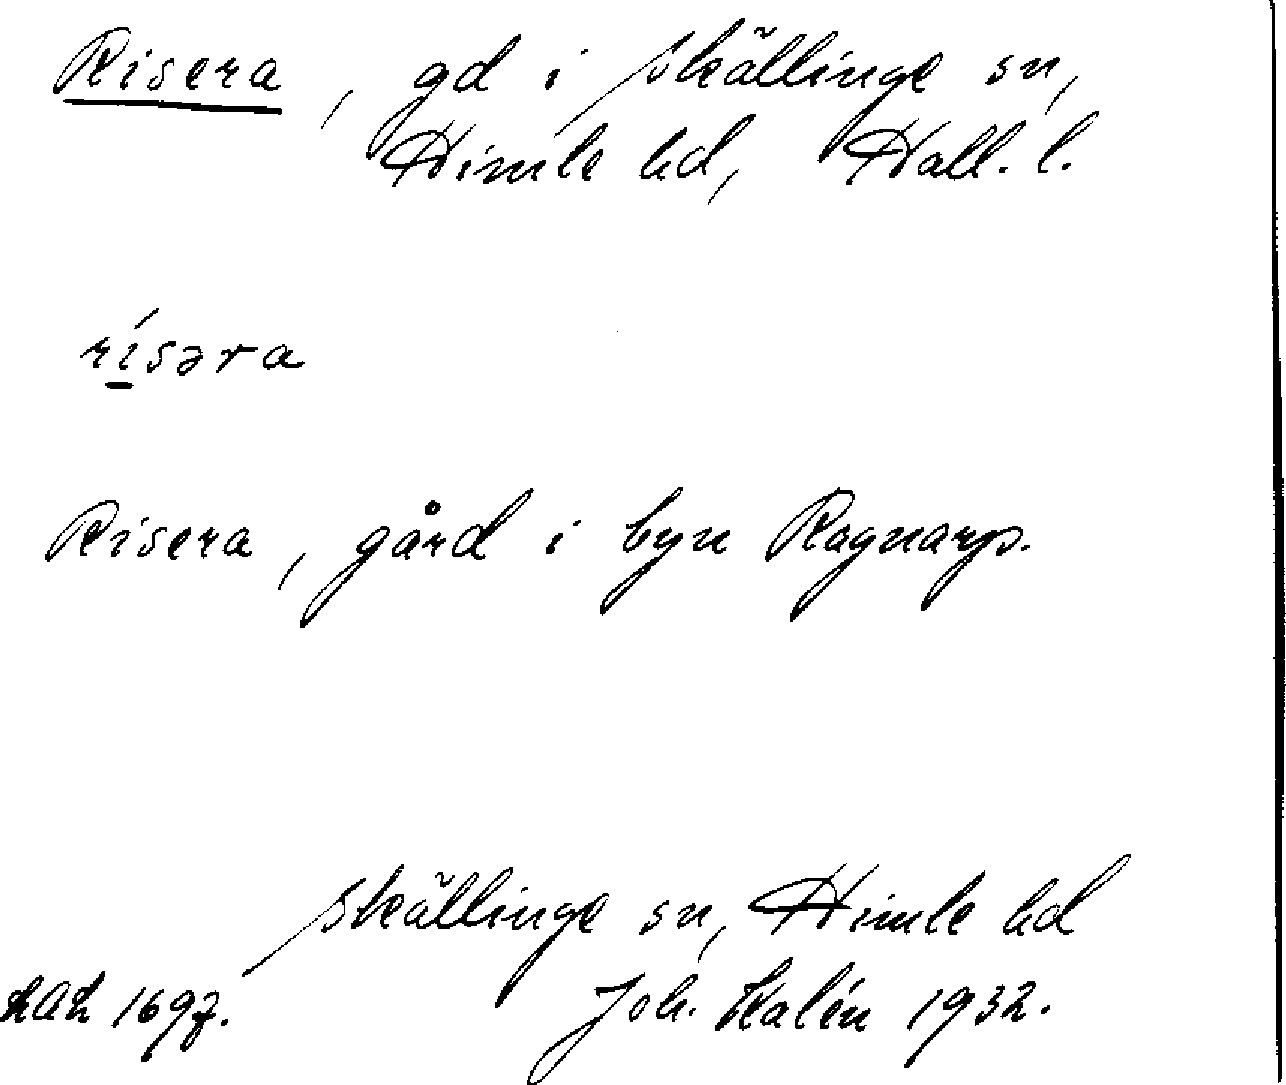 Risera, gd i Skällinge sn,
Himle hd, Hall. l.
rísəra
Risera, gård i byn Ragnarp.
Skällinge sn, Himle hd
1697. Joh. Kalén 1932.